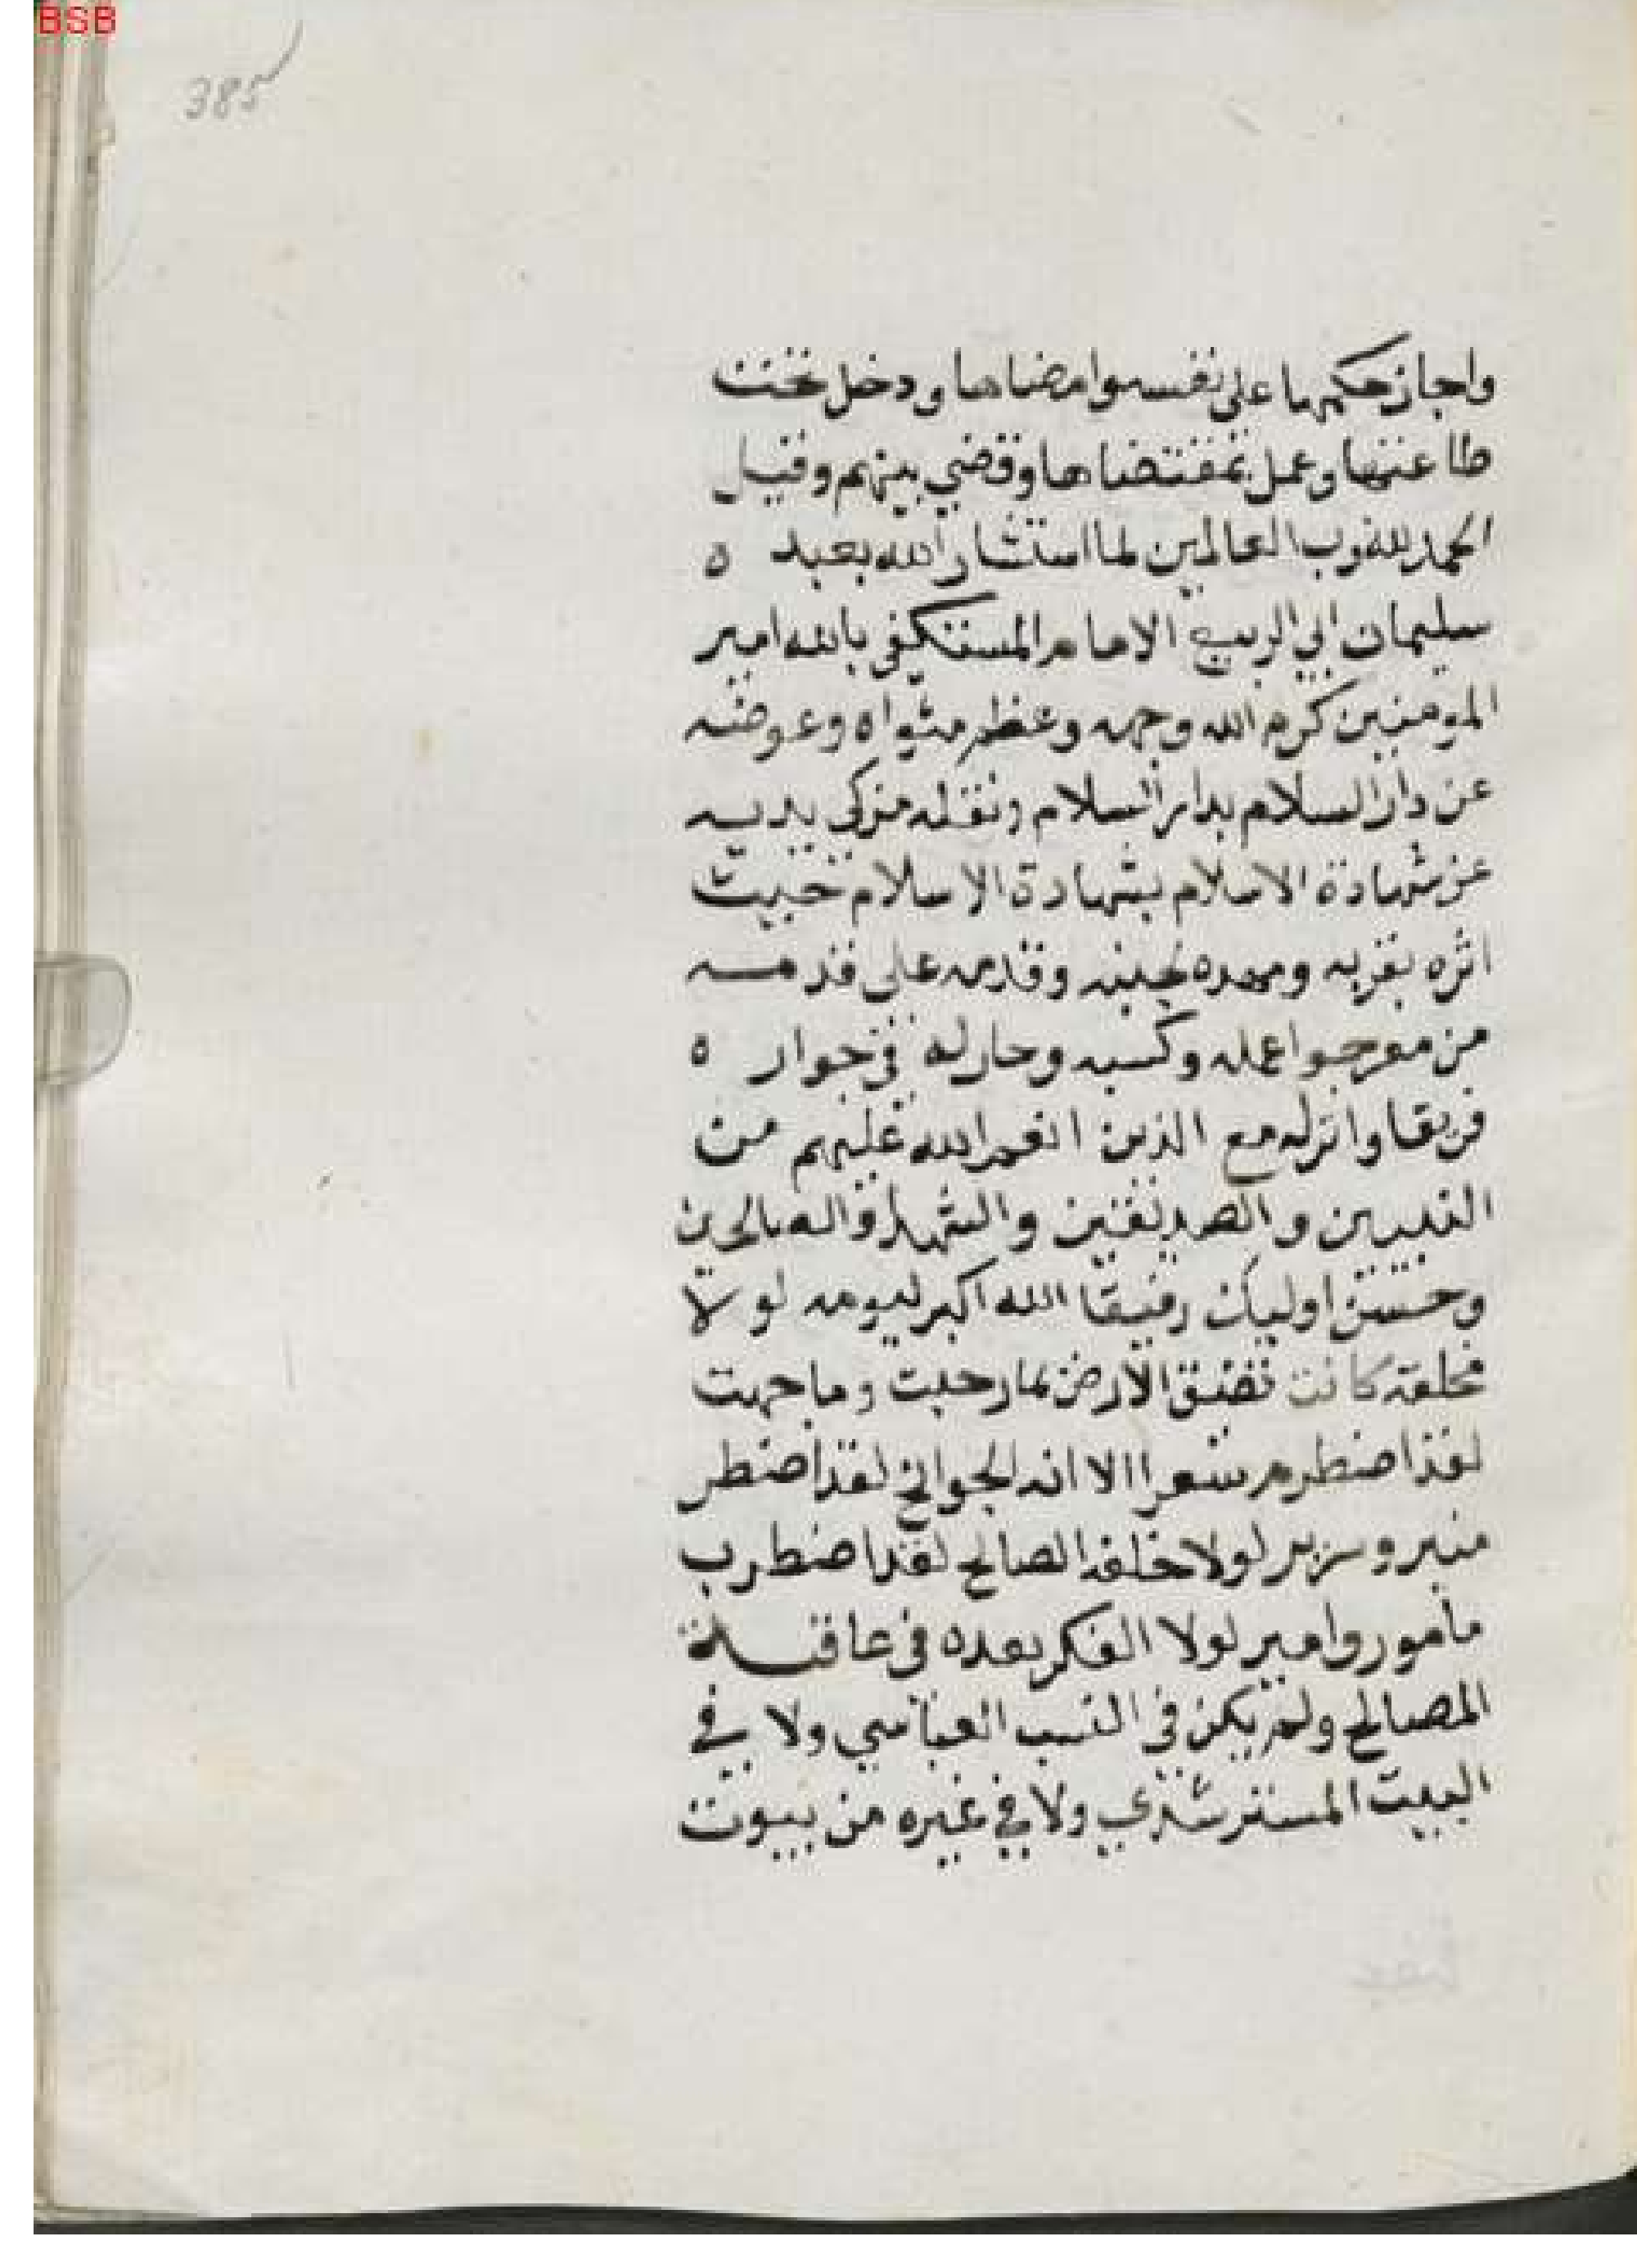 BSB
385
واجاز حكمها على نفسه وامضاها ودخل تحت
طاعتها وعمل بمقتضاها وقضي بينهم وقيل
الحمد لله رب العالمين لما استشار الله بعبده
سليمان ابي الربيع الامام المستكفي بالله امير
المومنين كرم الله وجهه وعظم مثواه وعوضه
عن دار السلام بدار السلام ونقله مزكي يديه
عن شهادة الاسلام بشهادة الاسلام حيث
اثره بقربه ومهده لجنبه وقدمه على قدمه
من مرجوا عمله وكسبه وحار له في جواره
فريقا وانزله مع الذين انعم الله عليهم من
النبيين والصديقين والشهدا والصالحين
وحسن اوليك رفيقا الله اكبر ليومه لولا
مخلفه كانت تضيق الارض بما رحبت وما جهت
لقد اضطرم سعرا الا انه الجوانح لقد اضطر
منبر وسرير لولا خلفه الصالح لقد اضطرب
مامور وامير لولا الفكر بعده في عاقبة
المصالح ولم يكن في النسب العباسي ولا في
البيت المسترشدي ولا في غيره من بيوت